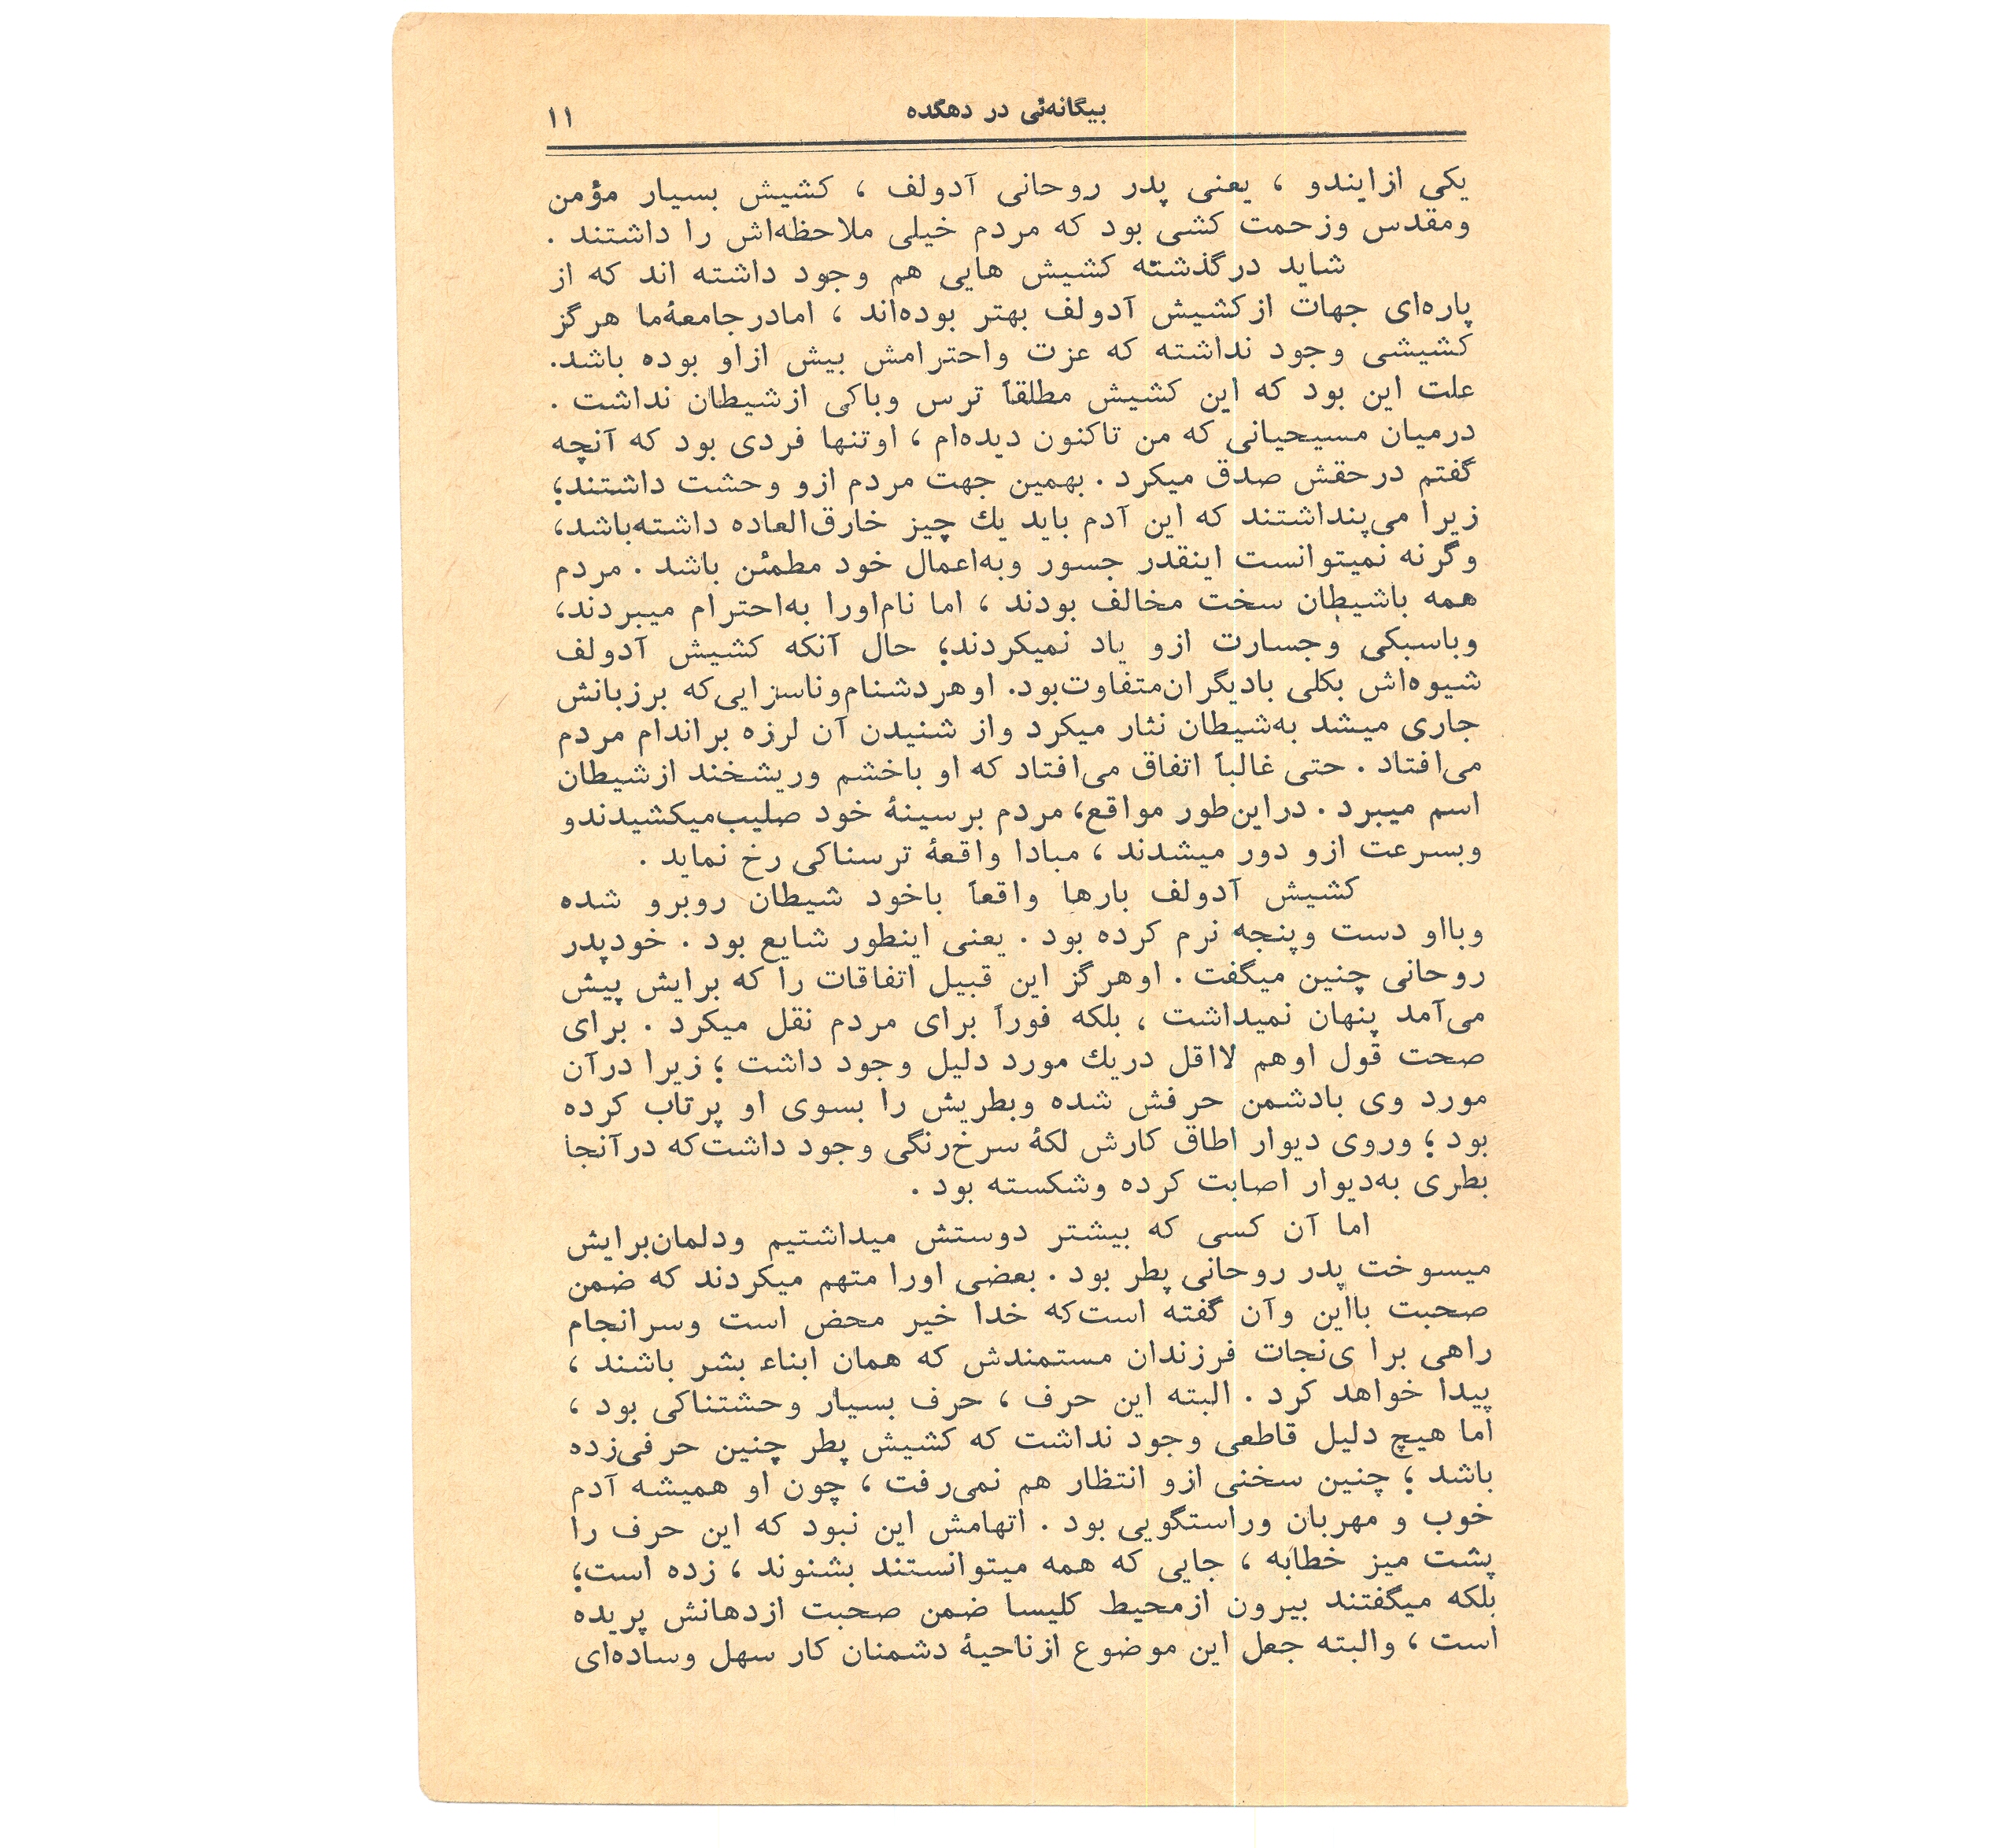 بیگانه‌ئی در دهکده ۱۱
یکی ازایندو ، یعنی پدر روحانی آدولف ، کشیش بسیار مؤمن
ومقدس وزحمت کشی بود که مردم خیلی ملاحظه‌اش را داشتند .
شاید درگذشته کشیش هایی هم وجود داشته اند که از
پاره‌ای جهات ازکشیش آدولف بهتر بوده‌اند ، امادرجامعهٔ‌ما هرگز
کشیشی وجود نداشته که عزت واحترامش بیش ازاو بوده باشد.
علت این بود که این کشیش مطلقاً ترس وباکی ازشیطان نداشت .
درمیان مسیحیانی که من تاکنون دیده‌ام ، اوتنها فردی بود که آنچه
گفتم درحقش صدق میکرد . بهمین جهت مردم ازو وحشت داشتند؛
زیرا می‌پنداشتند که این آدم باید یك چیز خارق‌العاده داشته‌باشد،
وگرنه نمیتوانست اینقدر جسور وبه‌اعمال خود مطمئن باشد . مردم
همه باشیطان سخت مخالف بودند ، اما نام‌اورا به‌احترام میبردند،
وباسبکی وجسارت ازو یاد نمیکردند؛ حال آنکه کشیش آدولف
شیوه‌اش بکلی بادیگران‌متفاوت‌بود. اوهردشنام‌وناسزایی‌که برزبانش
جاری میشد به‌شیطان نثار میکرد واز شنیدن آن لرزه براندام مردم
می‌افتاد . حتی غالباً اتفاق می‌افتاد که او باخشم وریشخند ازشیطان
اسم میبرد . دراین‌طور مواقع، مردم برسینهٔ خود صلیب‌میکشیدندو
وبسرعت ازو دور میشدند ، مبادا واقعهٔ ترسناکی رخ نماید .
کشیش آدولف بارها واقعاً باخود شیطان روبرو شده
وبااو دست وپنجه نرم کرده بود . یعنی اینطور شایع بود . خودپدر
روحانی چنین میگفت . اوهرگز این قبیل اتفاقات را که برایش پیش
می‌آمد پنهان نمیداشت ، بلکه فوراً برای مردم نقل میکرد . برای
صحت قول اوهم لااقل دریك مورد دلیل وجود داشت ؛ زیرا درآن
مورد وی بادشمن حرفش شده وبطریش را بسوی او پرتاب کرده
بود ؛ وروی دیوار اطاق کارش لکهٔ سرخ‌رنگی وجود داشت‌که درآنجا
بطری به‌دیوار اصابت کرده وشکسته بود .
اما آن کسی که بیشتر دوستش میداشتیم ودلمان‌برایش
میسوخت پدر روحانی پطر بود . بعضی اورا متهم میکردند که ضمن
صحبت بااین وآن گفته است‌که خدا خیر محض است وسرانجام
راهی برا ی‌نجات فرزندان مستمندش که همان ابناء بشر باشند ،
پیدا خواهد کرد . البته این حرف ، حرف بسیار وحشتناکی بود ،
اما هیچ دلیل قاطعی وجود نداشت که کشیش پطر چنین حرفی‌زده
باشد ؛ چنین سخنی ازو انتظار هم نمی‌رفت ، چون او همیشه آدم
خوب و مهربان وراستگویی بود . اتهامش این نبود که این حرف را
پشت میز خطابه ، جایی که همه میتوانستند بشنوند ، زده است؛
بلکه میگفتند بیرون ازمحیط کلیسا ضمن صحبت ازدهانش پریده
است ، والبته جعل این موضوع ازناحیهٔ دشمنان کار سهل وساده‌ای